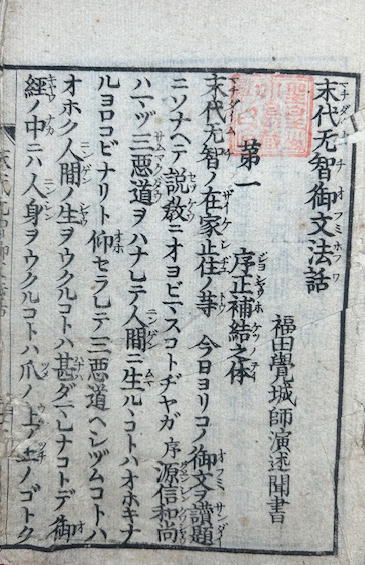 末代无智御文法話
福田覺城師演述聞書
第一 序正補結之体
末代无智ノ在家止住ノ等 今日ヨリコノ御文ヲ讃題
ニソナヘテ説教ニオヨビマスコトヂヤガ 序 源信和尚
ハマヅ三惡道ヲハナレテ人間ニ生ルヽコトハオホキナ
ルヨロコビナリト仰セラレテ三惡道ヘシヅムコトハ
オホク人間ノ生ヲウクルコトハ甚ダマレナコトデ御
經ノ中ニハ人身ヲウクルコトハ爪ノ上ノ土ノゴトク